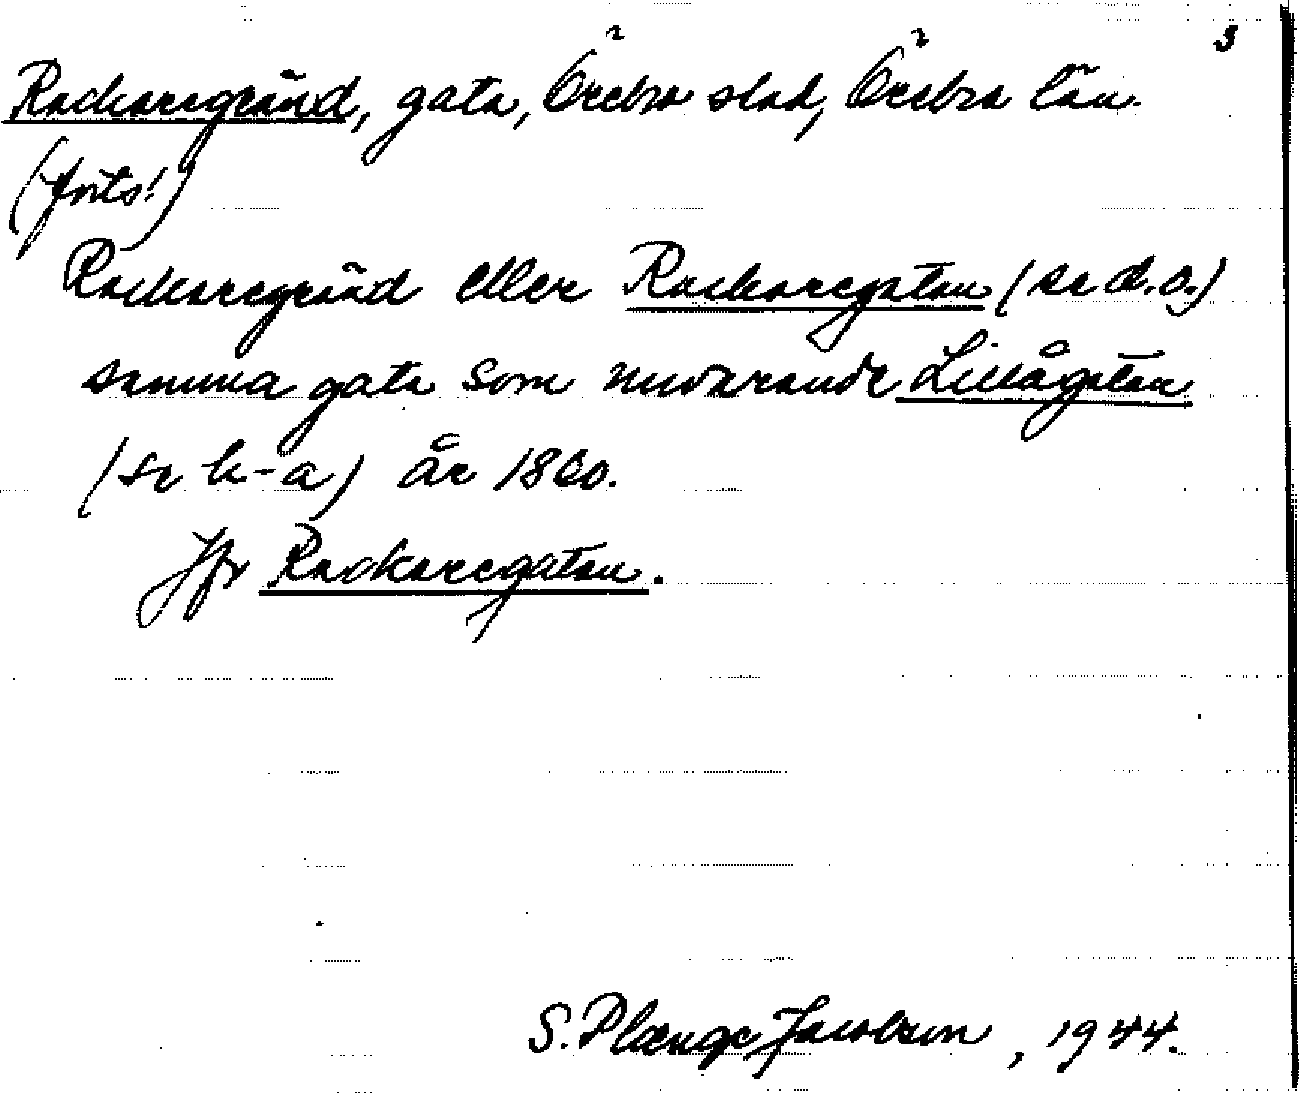 3
Rackaregränd, gata, Örebro stad, Örebro län.
(forts!)
Rackaregränd eller Rackaregatan (se d.o.)
samma gata som nuvarande Lillågatan
(se h-a) år 1860.
Jfr Rackaregatan.
S. Plænge Jacobson, 1944.